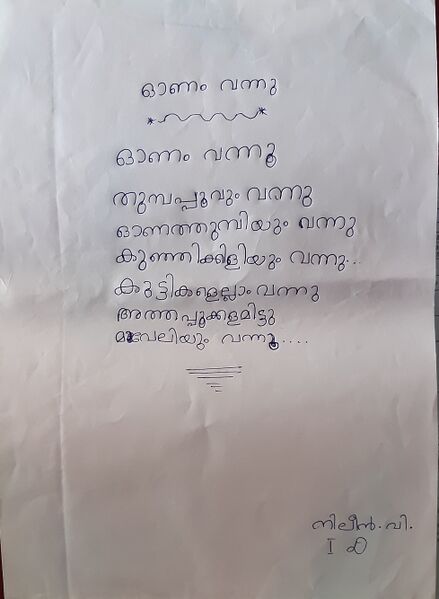 ഓണം വന്നു
ഓണം വന്നൂ
തുമ്പപ്പൂവും വന്നു
ഓണത്തുമ്പിയും വന്നു
കുഞ്ഞിക്കിളിയും വന്നു...
കുട്ടികളെല്ലാം വന്നു
അത്തപ്പൂക്കളമിട്ടു
മാവേലിയും വന്നൂ.....
നിലീൻ. വി.
I ഠ